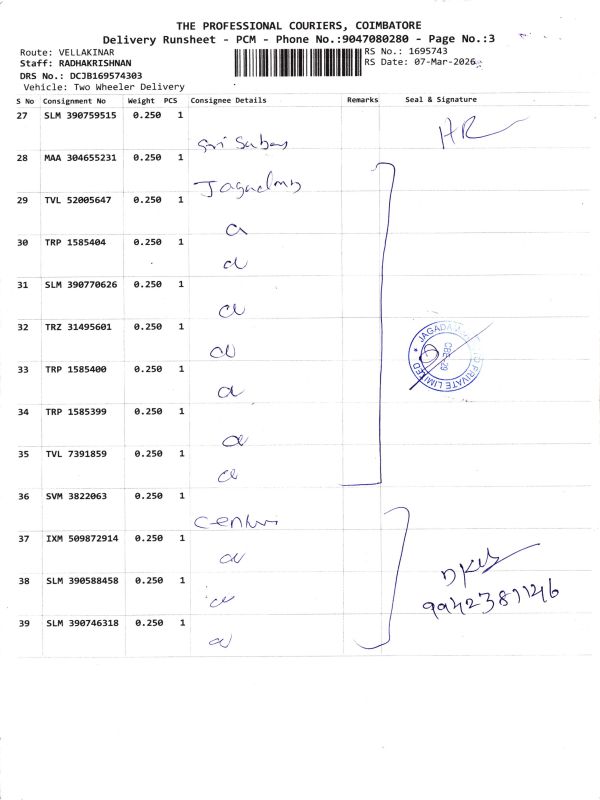 THE PROFESSIONAL COURIERS, COIMBATORE
Delivery Runsheet - PCM - Phone No.:9047080280 - Page No.:3
Route: VELLAKINAR
RS No.: 1695743
Staff: RADHAKRISHNAN
RS Date: 07-Mar-2026
DRS No.: DCJB169574303
Vehicle: Two Wheeler Delivery
S No Consignment No Weight PCS Consignee Details Remarks Seal & Signature
27 SLM 390759515 0.250 1
HR
Sri Subay
28 MAA 304655231 0.250 1
29 TVL 52005647 0.250 1
30 TRP 1585404 0.250 1
31 SLM 390770626 0.250 1
32 TRZ 31495601 0.250 1
JAGADA
PRIVATE LIMITED
CBE-29
33 TRP 1585400 0.250 1
34 TRP 1585399 0.250 1
35 TVL 7391859 0.250 1
36 SVM 3822063 0.250 1
37 IXM 509872914 0.250 1
38 SLM 390588458 0.250 1
39 SLM 390746318 0.250 1